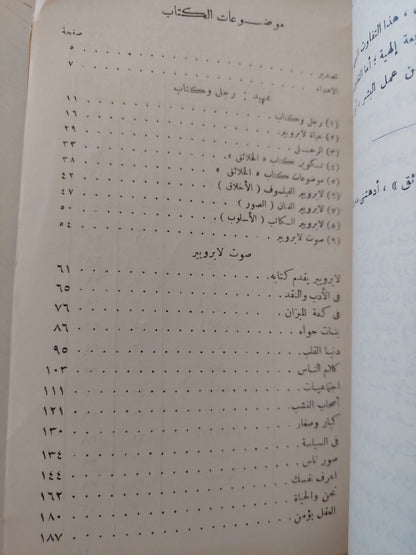 موضوعات الكتاب
صفحة
تصدير . . . . . ٥
الاهداء . . . . . ٧
تمهيد : رجل وكتاب
(١) رجل وكتاب . . . . . ١١
(٢) حياة لابرويير . . . . . ١٦
(٣) الرجل . . . . . ٢٩
(٤) تكوين كتاب « الخلائق » . . . . . ٣٣
(٥) موضوعات كتاب « الخلائق » . . . . . ٣٨
(٦) لابرويير الفيلسوف ( الأخلاق ) . . . . . ٤٢
(٧) لابرويير الفنان ( الصور ) . . . . . ٤٧
(٨) لابرويير الكاتب ( الأسلوب ) . . . . . ٥٠
(٩) صوت لابرويير . . . . . ٥٤
صوت لابرويير
لابرويير يقدم كتابه . . . . . ٦١
في الأدب والنقد . . . . . ٦٥
في كفة الميزان . . . . . ٧٦
بنات حواء . . . . . ٨٦
دنيا القلب . . . . . ٩٥
كلام الناس . . . . . ١٠٣
اجتماعيات . . . . . ١١١
أصحاب النشب . . . . . ١٢١
كبار وصغار . . . . . ١٣٠
في السياسة . . . . . ١٣٤
صور ناس . . . . . ١٤٤
اعرف نفسك . . . . . ١٦٢
نحن والحياة . . . . . ١٨٠
العقل يؤمن . . . . . ١٨٧
، هذا التفاوت
إلهية ؛ أما
عمل البشر ،